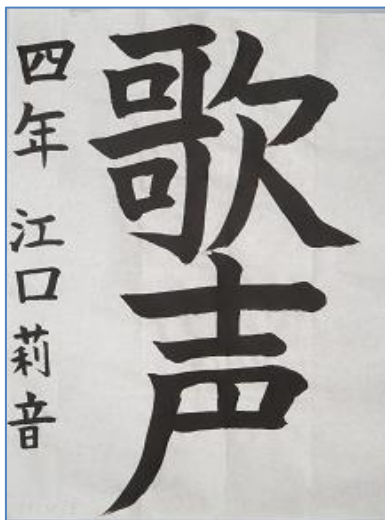 歌声
四年 江口莉音